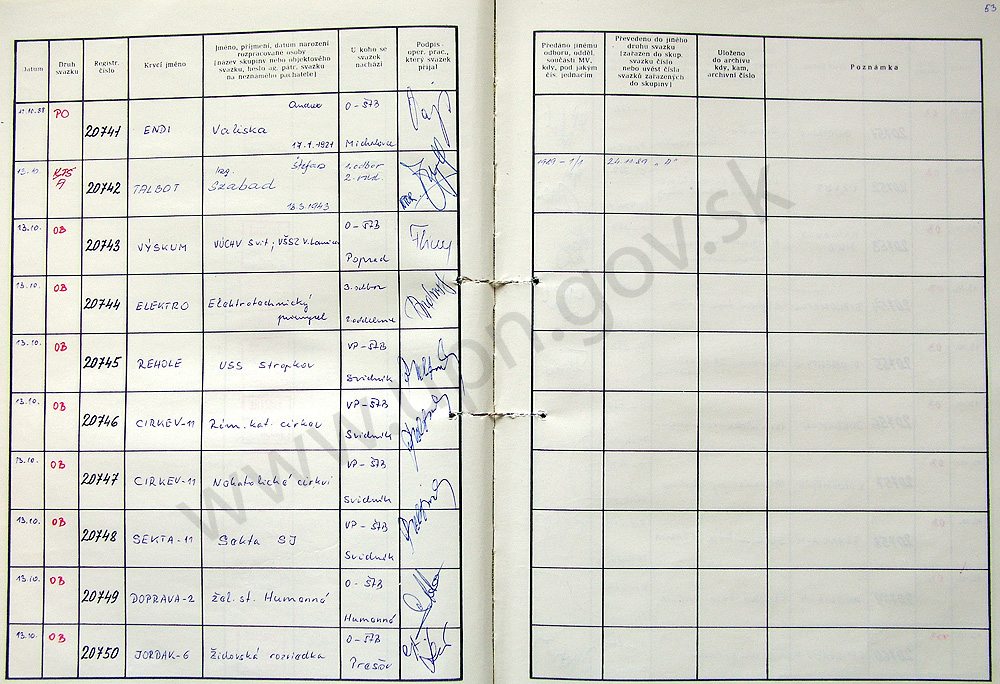 53
Datum
Druh svazku
Registr. číslo
Krycí jméno
Jméno, příjmení, datum narození
rozpracované osoby
(název skupiny nebo objektového
svazku, heslo ag. pátr. svazku
na neznámého pachatele)
U koho se
svazek
nachází
Podpis
oper. prac.,
který svazek
přijal
Předáno jinému
odboru, odděl.
součásti MV,
kdy, pod jakým
čís. jednacím
Převedeno do jiného
druhu svazku
(zařazen do skup.
svazku číslo
nebo uvést čísla
svazků zařazených
do skupiny)
Uloženo
do archivu
kdy, kam,
archivní číslo
Poznámka
PO
20741
ENDI
Valiska
17.1.1921
O - ŠTB
Michalovce
13.10.
20742
TALBOT
Ing. Štefan
Szabad
13.3.1943
1. odbor
1989 - 1/1
24.11.89 "A"
13.10.
OB
20743
VÝSKUM
VÚCHV Svit, VŠSZ V. Lomnica
O - ŠTB
Poprad
13.10.
OB
20744
ELEKTRO
Elektrotechnický
priemysel
3. odbor
2 oddelenie
13.10.
OB
20745
REHOLE
USS Stropkov
VP - ŠTB
Svidník
13.10.
OB
20746
CIRKEV-11
Rím. kat. cirkev
VP - ŠTB
Svidník
13.10.
OB
20747
CIRKEV-11
Nekatolícké cirkvi
VP - ŠTB
Svidník
13.10.
OB
20748
SEKTA-11
Sekta SJ
VP - ŠTB
Svidník
13.10.
OB
20749
DOPRAVA-2
žel. st. Humenné
O - ŠTB
Humenné
13.10.
OB
20750
JORDAK-6
Židovská rozviedka
O - ŠTB
Prešov
www.upn.gov.sk